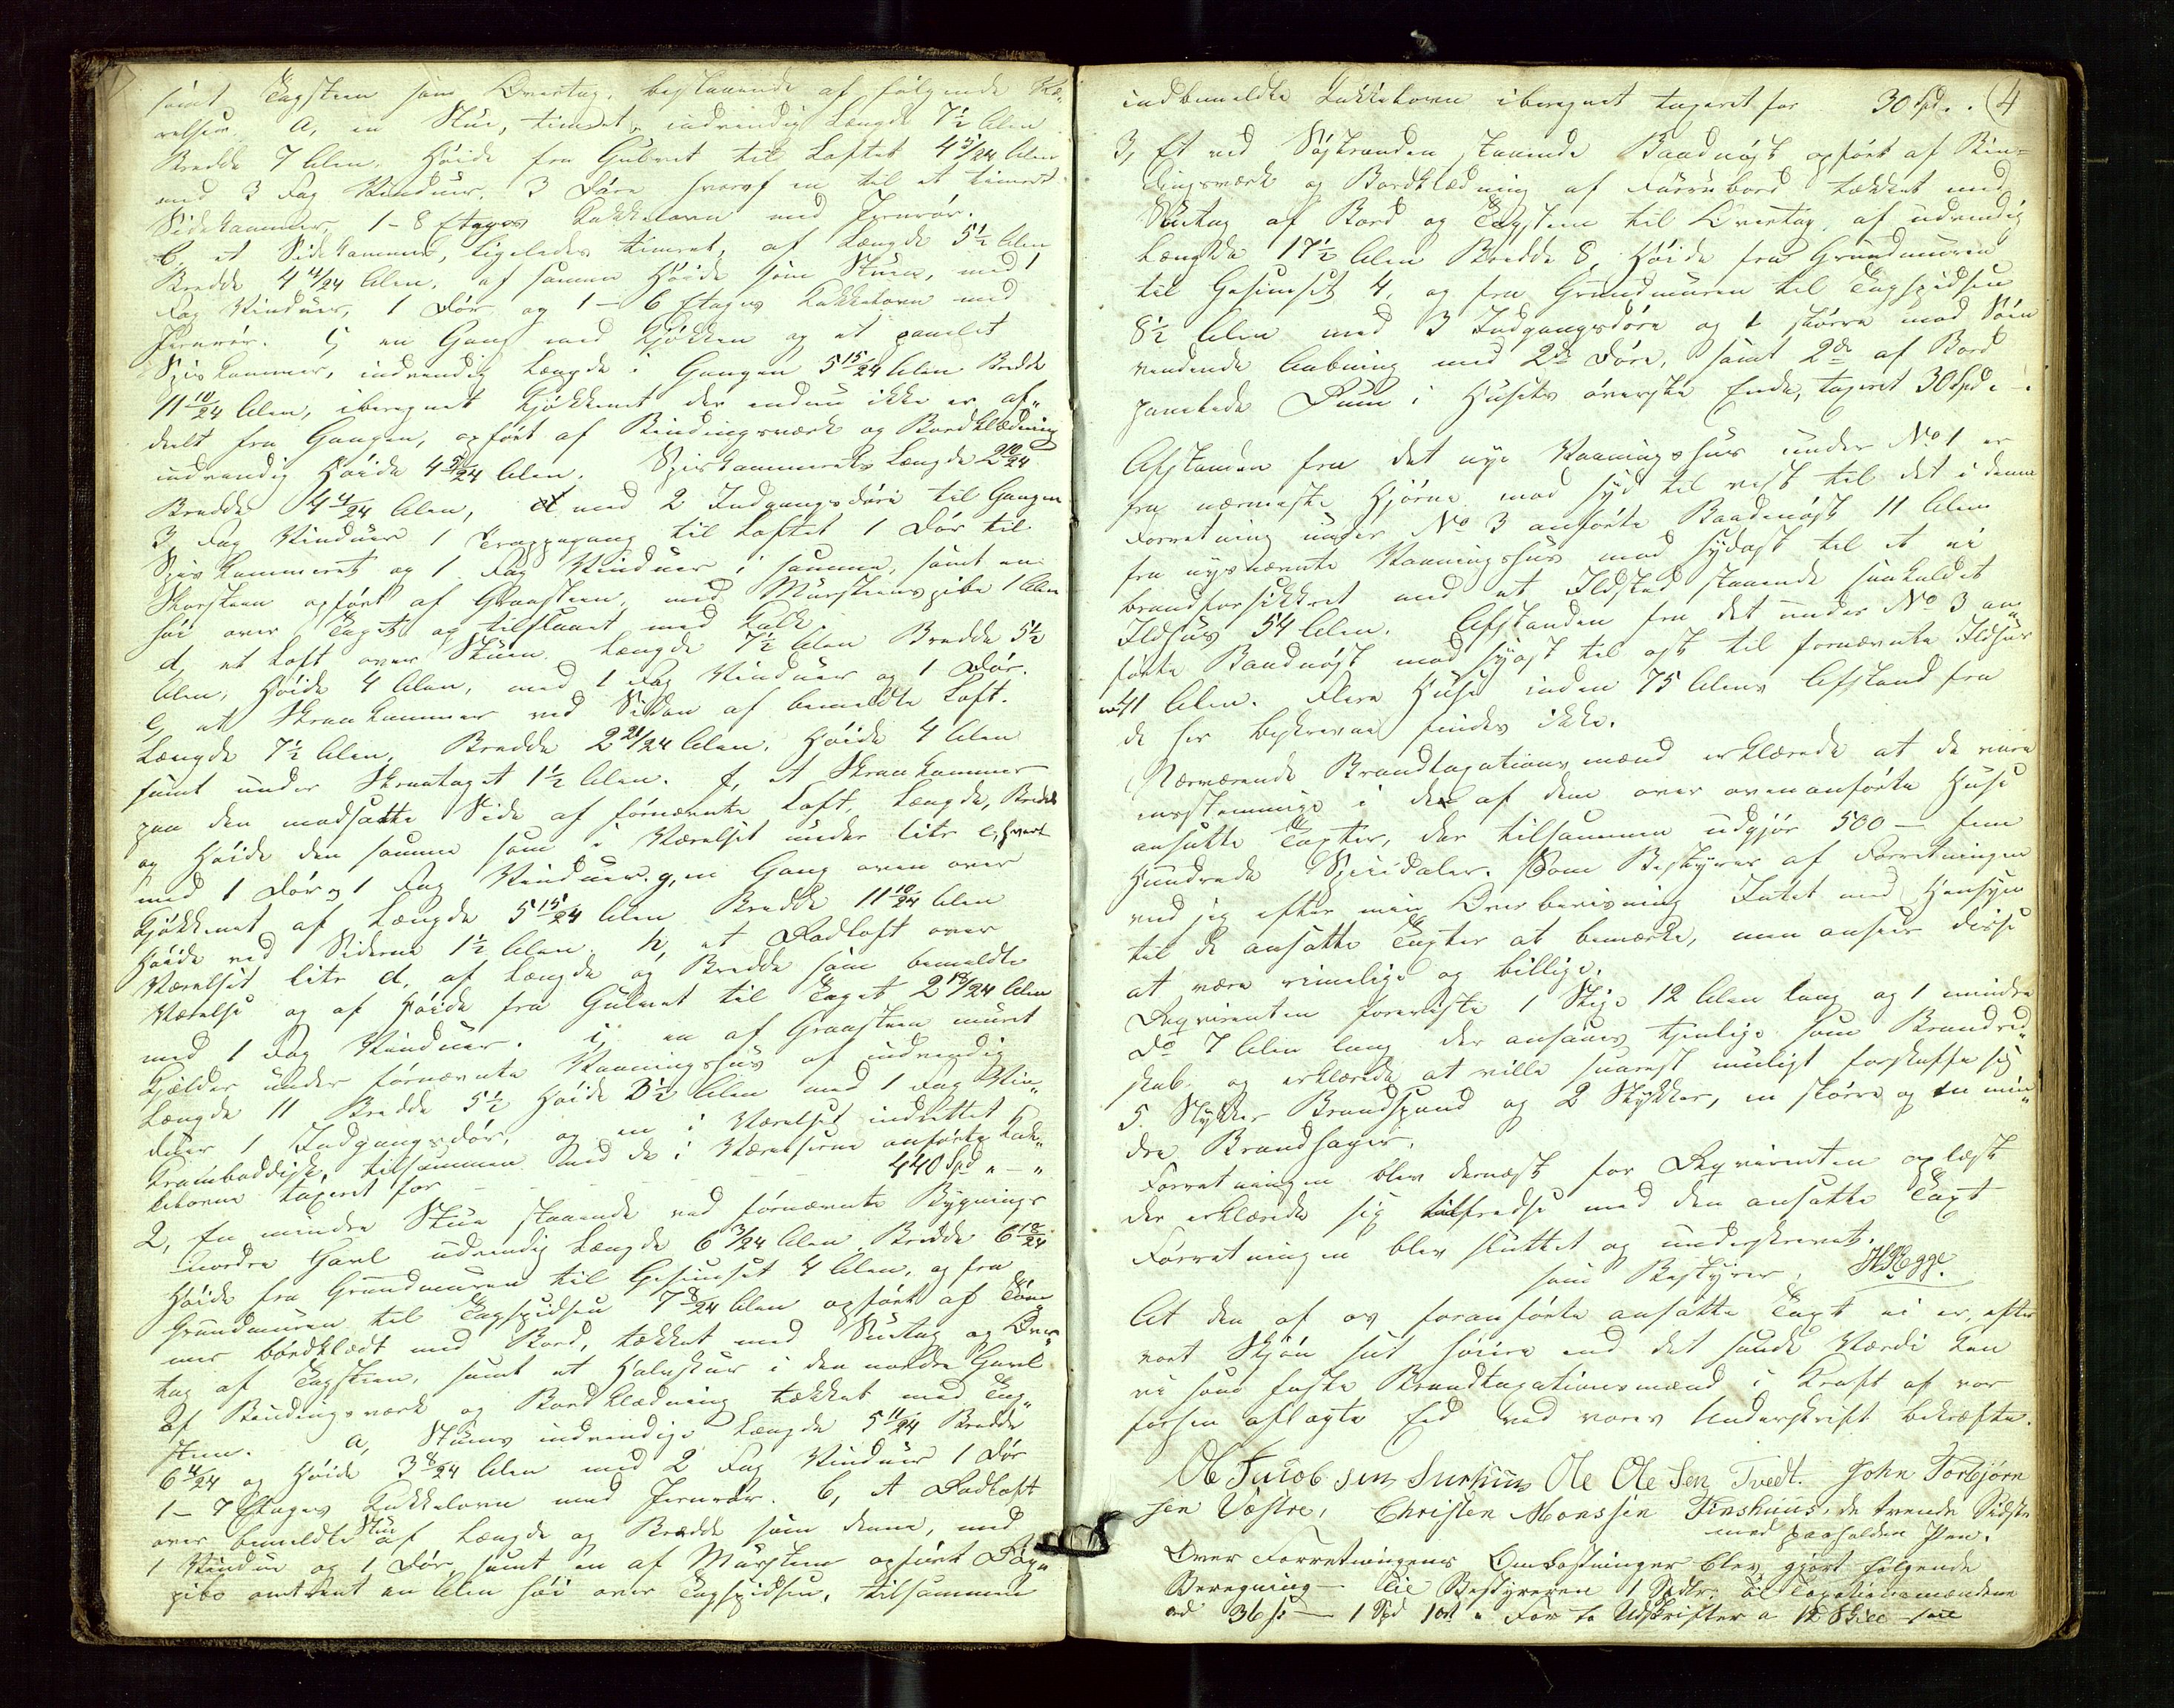 samt Tagsteen som Overtag, bestaaende af følgende Væ„
relser. a, en Stue, timret, indvendig Længde 7½ Alen
Bredde 7 Alen, Høide fra Gulvet til Loftet 4 5/24 Alen
med 3 Fag Vinduer, 3 Døre hvoraf en til et timret
Sidekammer, 1 - 8 Etages Kakkelovn med Jernrør.
b, et Sidekammer, ligeledes timret, af Længde 5½ Alen
Bredde 4 4/24 Alen, af samme Høide som Stuen, med 1
Fag Vinduer, 1 Dør og 1 - 6 Etages Kakkelovn med
Jernrør. c, en Gang med Kjøkken og et panelet
Spiskammer, indvendig Længde i Gangen 5 15/24 Alen Bredde
11 10/24 Alen, iberegnet Kjøkkenet der endnu ikke er af„
deelt fra Gangen, opført af Bindingsværk og Bordklædning
indvendig Høide 4 5/24 Alen. Spiskammerets Længde 2 20/24
Bredde 4 4/24 Alen, med 2 Indgangsdøre til Gangen
3 Fag Vinduer 1 Trappegang til Loftet 1 Dør til
Spiskammeret og 1 Fag Vinduer i samme, samt en
Skorsteen opført af Graasteen, med Murstenspibe 1 Alen
høi over Taget og tilslaaet med Kalk.
d, et Loft over Stuen Længde 7½ Alen Bredde 5½
Alen, Høide 4 Alen, med 1 Fag Vinduer og 1 Dør.
e, et Skraakammer ved Siden af bemeldte Loft.
Længde 7½ Alen, Bredde 2 21/24 Alen. Høide 4 Alen
samt under Skraataget 1½ Alen. f, et Skraakammer
paa den modsatte Side af fornævnte Loft, Længde, Bredde
og Høide den samme som i Værelset under litr e, hvert
med 1 Dør og 1 Fag Vinduer. g, en Gang oven over
Kjøkkenet af Længde 5 15/24 Alen Bredde 11 10/24 Alen
Høide ved Siderne 1½ Alen. h, et Rodloft over
Værelset litr d, af Længde og Bredde som bemeldte
Værelse og af Høide fra Gulvet til Taget 2 18/24 Alen
med 1 Fag Vinduer. i, en af Graasteen muret
Kjælder under fornævnte Vaaningshus af indvendig
Længde 11 Bredde 5½ Høide 3½ Alen med 1 Fag Vin„
duer 1 Indgangsdør, og en i Værelset indrettet
Krambuddisk, tilsammen med de i Værelserne anførte Kak„
kelovne taxeret for - - - - - 440 Spd „ - „
2, En mindre Stue staaende ved fornævnte Bygnings
nordre Gavl udvendig Længde 6 3/24 Alen Bredde 6 18/24
Høide fra Grundmuren til Gesimset 4 Alen, og fra
Grundmuren til Tagspidsen 7 8/24 Alen opført af Tøm„
mer bordklædt med Bord, tækket med Sutag og Over„
tag af Tagsteen, samt et Halvskur i den nordre Gavl
af Bindingsværk og Bordklædning tækket med Tag„
steen. a, Stuens indvendige Længde 5 11/24 Bredde
6 4/24 og Høide 3 8/24 Alen med 2 Fag Vinduer 1 Dør
1 - 7 Etages Kakkelovn med Jernrør. b, et Rodloft
over bemeldte Stue af Længde og Bredde som denne, med
1 Vindue og 1 Dør, samt en af Mursteen opført Røg„
pibe omtrent en Alen høi over Tagspidsen, tilsammen
indbemeldte Kakkelovn iberegnet taxeret for 30 Spd. „ 4
3, Et ved Søstranden staaende Baadnøst opført af Bin„
dingsværk og Bordklædning af Furrubord tækket med
Sutag af Bord og Tagsteen til Overtag, af udvendig
Længde 17½ Alen Bredde 8, Høide fra Grundmuren
til Gesimset 4, og fra Grundmuren til Tagspidsen
8½ Alen med 3 Indgangsdøre og 1 større mod Søen
vendende Aabning med 2de Døre, samt 2de af Bord
panelede Rum i Husets øverste Ende, taxeret 30 Spd „ - „
Afstanden fra det nye Vaaningshus under No 1 er
fra nærmeste Hjørne mod syd til vest til det i denne
Forretning under No 3 anførte Baadnøst 11 Alen
fra nysnævnte Vaaningshus mod sydost til et ei
brandforsikkret med et Ildsted staaende saakaldet
Ildhus 54 Alen. Afstanden fra det under No 3 an„
førte Baadnøst mod syost til ost til fornævnte Ildhus
er 41 Alen. Flere Huse inden 75 Alens Afstand fra
de her beskrevne findes ikke.
Nærværende Brandtaxationsmænd erklærede at de vare
eenstemmige i de af dem over ovenanførte Huse
ansatte Taxter, der tilsammen udgjør 500 — fem
Hundrede Speciedaler. Som Bestyrer af Forretningen
ved jeg efter min Overbeviisning Intet med Hensyn
til de ansatte Taxter at bemærke, men anseer disse
at være rimelige og billige.
Reqvirenten foreviste 1 Stige 12 Alen lang og 1 mindre
Do 7 Alen lang der ansaaes tjenlige som Brandred„
skab og erklærede at ville snarest muligt forskaffe sig
5 Stykker Brandspand og 2 Stykker, en større og en min„
dre Brandhager.
Forretningen blev dernæst for Reqvirenten oplæst
der erklærede sig tilfreds med den ansatte Taxt
Forretningen blev sluttet og underskrevet.
som Bestyrer, H Egge
At den af os foranførte ansatte Taxt ei er, efter
vort Skjøn sat høiere end det sande Værdi kan
vi som faste Brandtaxationsmænd i Kraft af vor
forhen aflagte Eed ved vores Underskrift bekræfte.
Ole Ole Sen Tvedt. John Torbjørn
sen Væstre, Christen Monssen Finshuus, de tvende Sidste
med paaholden Pen.
Over Forretningens Omkostninger blev gjort følgende
Beregning — Til Bestyreren 1 Spdlr. til Taxationsmændene
ad 36 s — 1 Spd 1 ort „ For to Udskrifter a 12 Skill